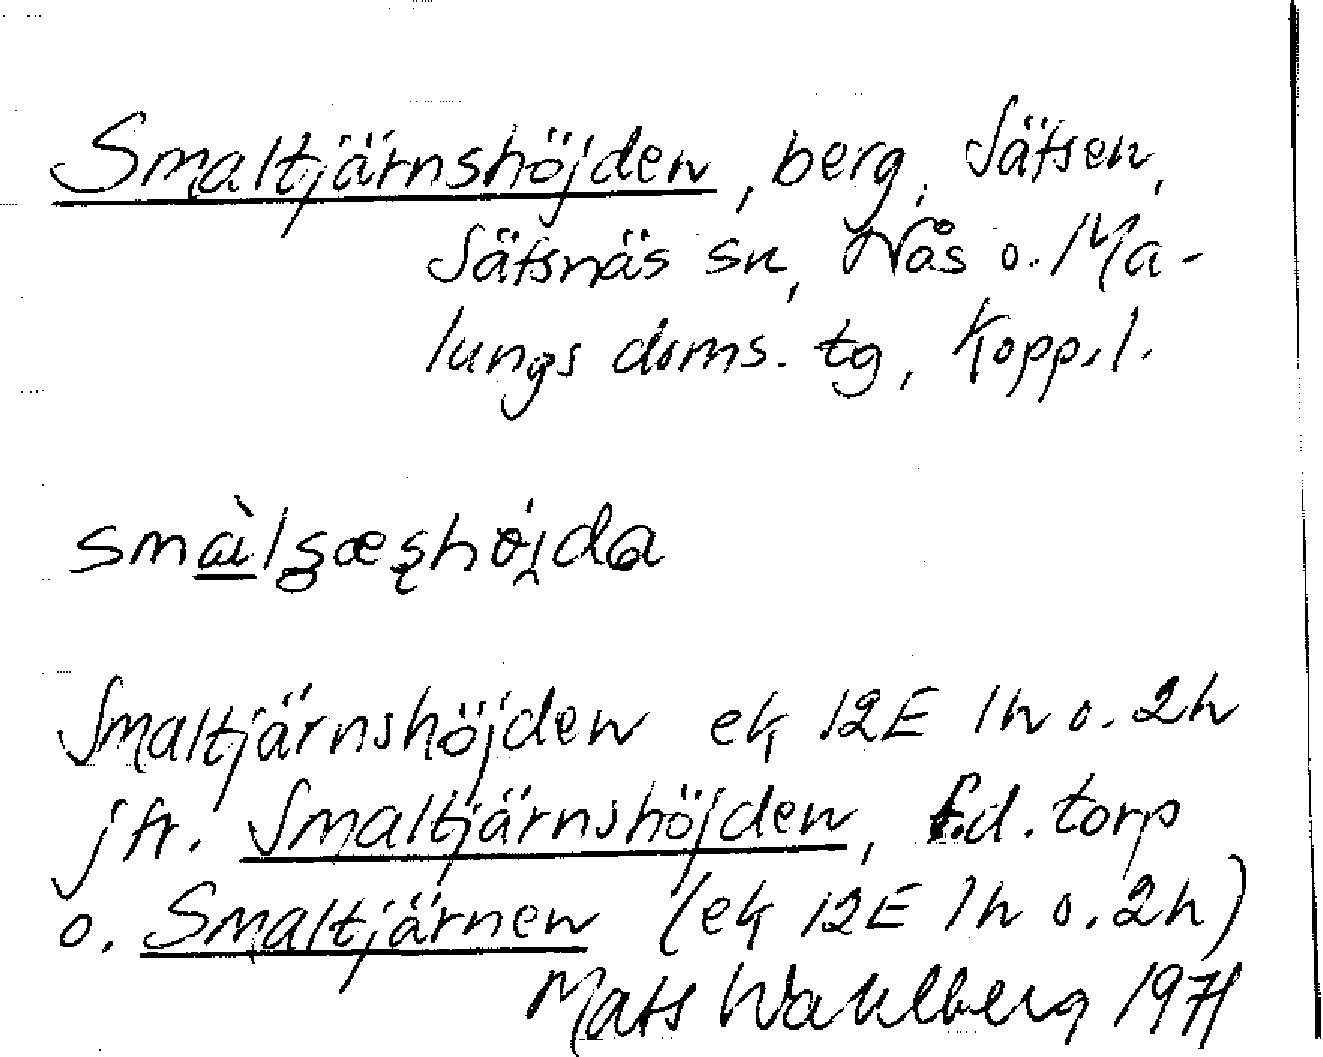 Smaltjärnshöjden, berg, Sätsen,
Sätsnäs sn, Nås o. Ma-
lungs doms. tg, Kopp. l.
Smaltjärnshöjden ek 12E 1h o. 2h
jfr. Smaltjärnshöjden, f.d. torp
o. Smaltjärnen (ek 12E 1h o. 2h)
Mats Wahlberg 1971